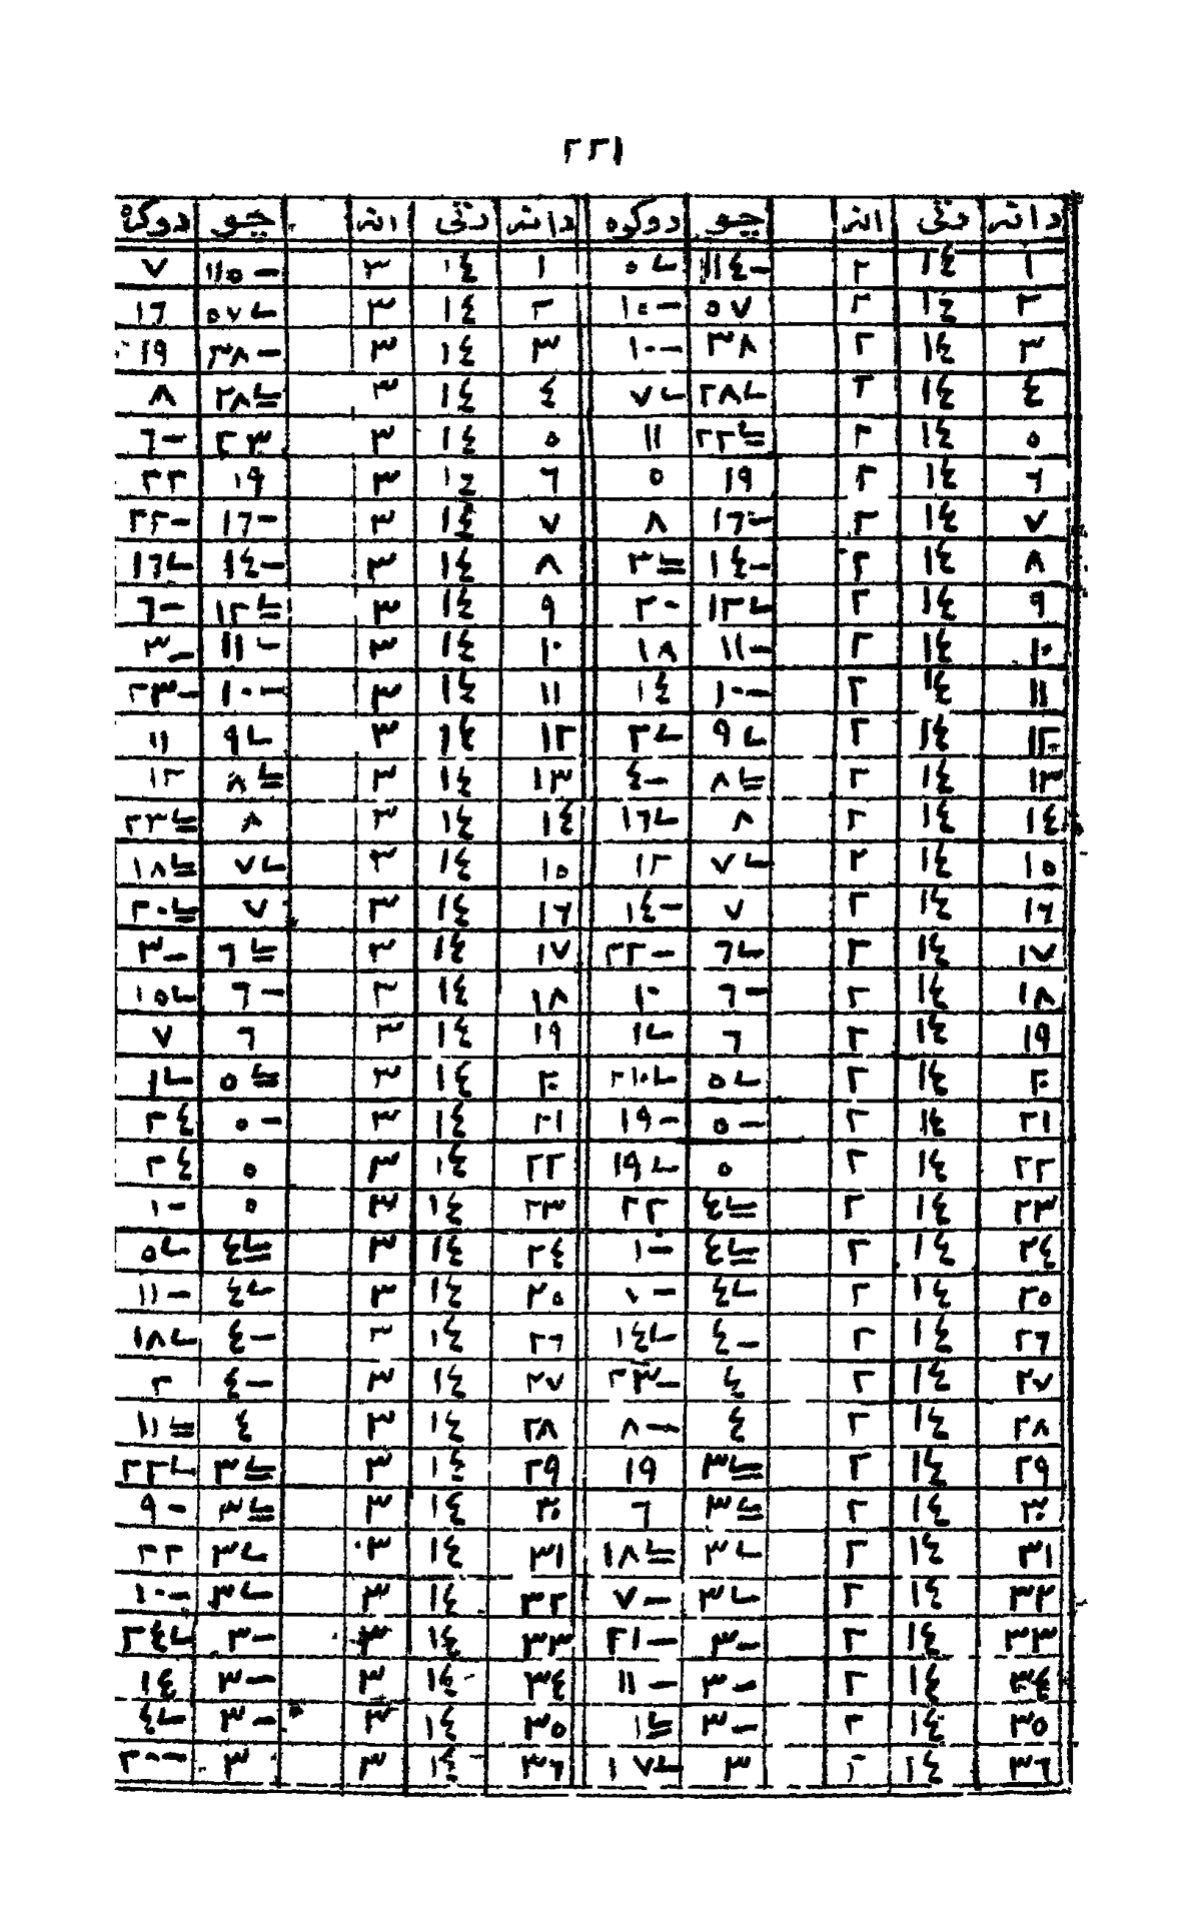 ٢٢١
دانه رتی انه چو دوکره دانه رتی انه چو دوکره
١ ١٤ ٢ ١١٤- ٥ل ١ ١٤ ٣ ١١٥- ٧
٢ ١٤ ٢ ٥٧ ١٠- ٢ ١٤ ٣ ٥٧ل ١٦
٣ ١٤ ٢ ٣٨ ١٠- ٣ ١٤ ٣ ٣٨- ١٩
٤ ١٤ ٢ ٢٨ل ٧ل ٤ ١٤ ٣ ٢٨ل= ٨
٥ ١٤ ٢ ٢٢ل= ١١ ٥ ١٤ ٣ ٢٣ ٦-
٦ ١٤ ٢ ١٩ ٥ ٦ ١٤ ٣ ١٩ ٢٢
٧ ١٤ ٢ ١٦- ٨ ٧ ١٤ ٣ ١٦- ٢٢-
٨ ١٤ ٢ ١٤- ٣ل= ٨ ١٤ ٣ ١٤- ١٦ل
٩ ١٤ ٢ ١٢ل ٢٠- ٩ ١٤ ٣ ١٢ل= ٦-
١٠ ١٤ ٢ ١١- ١٨ ١٠ ١٤ ٣ ١١ل ٣-
١١ ١٤ ٢ ١٠- ١٤ ١١ ١٤ ٣ ١٠- ٢٣-
١٢ ١٤ ٢ ٩ل ٢ل ١٢ ١٤ ٣ ٩ل ١١
١٣ ١٤ ٢ ٨ل= ٤- ١٣ ١٤ ٣ ٨ل= ١٢
١٤ ١٤ ٢ ٨ ١٦ل ١٤ ١٤ ٣ ٨ ٢٢ل=
١٥ ١٤ ٢ ٧ل ١٢ ١٥ ١٤ ٣ ٧ل ١٨ل=
١٦ ١٤ ٢ ٧ ١٤- ١٦ ١٤ ٣ ٧ ٢٠ل=
١٧ ١٤ ٢ ٦ل ٢٢- ١٧ ١٤ ٣ ٦ل= ٣-
١٨ ١٤ ٢ ٦- ١٠ ١٨ ١٤ ٣ ٦- ١٥ل
١٩ ١٤ ٢ ٦ ١ل ١٩ ١٤ ٣ ٦ ٧
٢٠ ١٤ ٢ ٥ل ٢٠ ١٤ ٣ ٥ل= ١ل
٢١ ١٤ ٢ ٥- ١٩- ٢١ ١٤ ٣ ٥- ٢٤
٢٢ ١٤ ٢ ٥ ١٩ل ٢٢ ١٤ ٣ ٥ ٢٤
٢٣ ١٤ ٢ ٤ل= ٢٢ ٢٣ ١٤ ٣ ٥ ١-
٢٤ ١٤ ٢ ٤ل= ١- ٢٤ ١٤ ٣ ٤ل= ٥ل
٢٥ ١٤ ٢ ٤ل ٢٥ ١٤ ٣ ٤ل ١١-
٢٦ ١٤ ٢ ٤- ١٤ل ٢٦ ١٤ ٣ ٤- ١٨ل
٢٧ ١٤ ٢ ٤ ٢٣- ٢٧ ١٤ ٣ ٤- ٢
٢٨ ١٤ ٢ ٤ ٨- ٢٨ ١٤ ٣ ٤ ١١ل=
٢٩ ١٤ ٢ ٣ل= ١٩ ٢٩ ١٤ ٣ ٣ل= ٢٢ل
٣٠ ١٤ ٢ ٣ل= ٦ ٣٠ ١٤ ٣ ٣ل= ٩-
٣١ ١٤ ٢ ٣ل ١٨ل= ٣١ ١٤ ٣ ٣ل ٢٢
٣٢ ١٤ ٢ ٣ل ٧- ٣٢ ١٤ ٣ ٣ل ١٠-
٣٣ ١٤ ٢ ٣- ٢١- ٣٣ ١٤ ٣ ٣- ٢٤ل
٣٤ ١٤ ٢ ٣- ١١- ٣٤ ١٤ ٣ ٣- ١٤
٣٥ ١٤ ٢ ٣- ١ل= ٣٥ ١٤ ٣ ٣- ٤ل
٣٦ ١٤ ٢ ٣ ١٧ل ٣٦ ١٤ ٣ ٣ ٢٠-